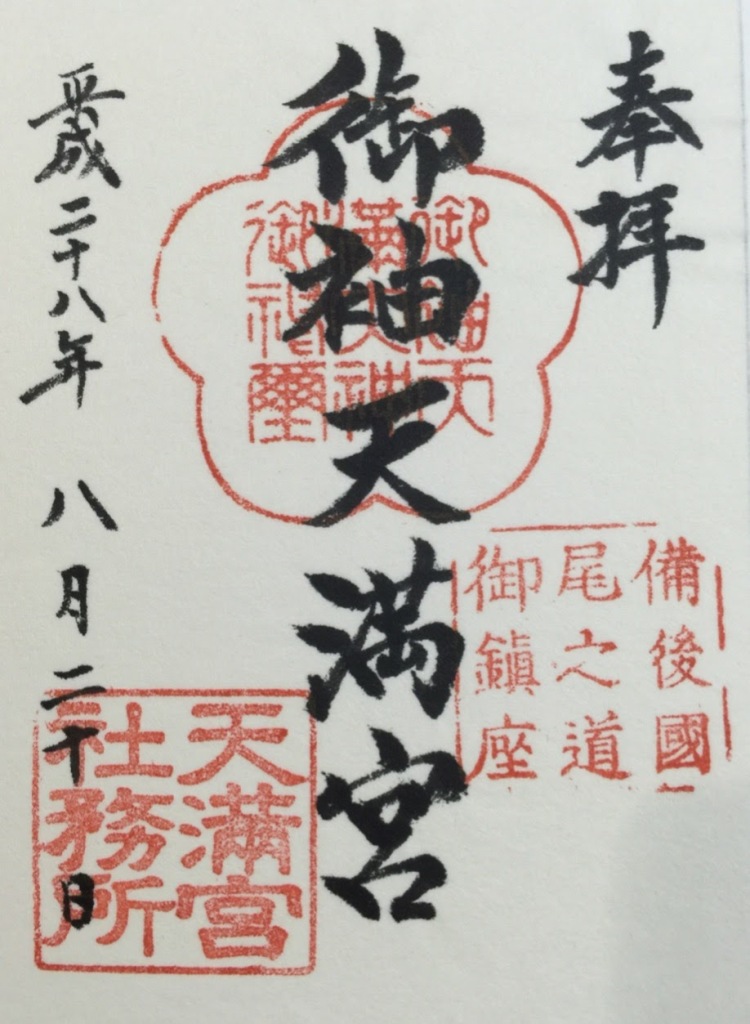 奉拝
備後國
尾之道
御鎮座
御袖天満宮
御袖天
満大神
御神璽
天満宮
社務所
平成二十八年 八月二十日